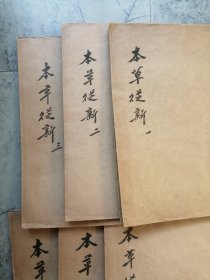 本草從新 一
本草從新 二
本草從新 三
本草
本草
本草